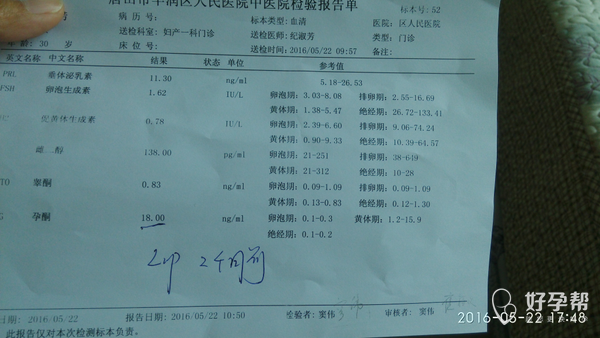 唐山市丰润区人民医院中医院检验报告单
病 历 号: 标本类型:血清 标本号:52
送检科室:妇产一科门诊 送检医师:纪淑芳 医院:区人民医院
年龄:30 岁 床 位 号: 送检时间:2016/05/22 09:57 类型:门诊
备注:
英文名称 中文名称 结果 状态 单位 参考值
PRL 垂体泌乳素 11.30 ng/ml 5.18-26.53
FSH 卵泡生成素 1.62 IU/L 卵泡期:3.03-8.08 排卵期:2.55-16.69
黄体期:1.38-5.47 绝经期:26.72-133.41
促黄体生成素 0.78 IU/L 卵泡期:2.39-6.60 排卵期:9.06-74.24
黄体期:0.90-9.33 绝经期:10.39-64.57
雌二醇 138.00 pg/ml 卵泡期:21-251 排卵期:38-649
黄体期:21-312 绝经期:10-28
TO 睾酮 0.83 ng/ml 卵泡期:0.09-1.09 排卵期:0.09-1.09
黄体期:0.13-0.83 绝经期:0.12-1.30
G 孕酮 18.00 ng/ml 卵泡期:0.1-0.3 黄体期:1.2-15.9
绝经期:0.1-0.2
2个月前
日期:2016/05/22 报告日期:2016/05/22 10:50 检验者:窦伟 审核者:窦伟
此报告仅对本次检测标本负责。
好孕帮
2016-05-22 17:48